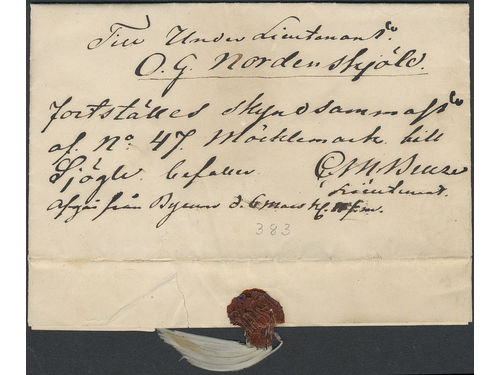 Till Under Lieutenant
O. G. Nordenskjöld.
fortställes skyndsammast
af No 47. Möcklemark till
Sjögle. befaller
Lieutenant.
Afgår från d. 6 Mars Kl. f.m.
383